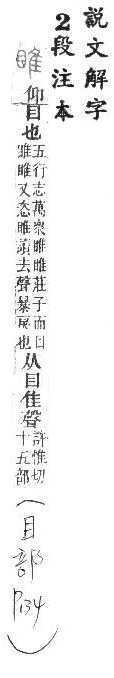 説文解字
2段注本
睢
仰目也
五行志萬衆睢睢莊子而目
睢睢又恣睢讀去聲暴戾也
从目隹聲
許惟切
十五部
(目部P134)